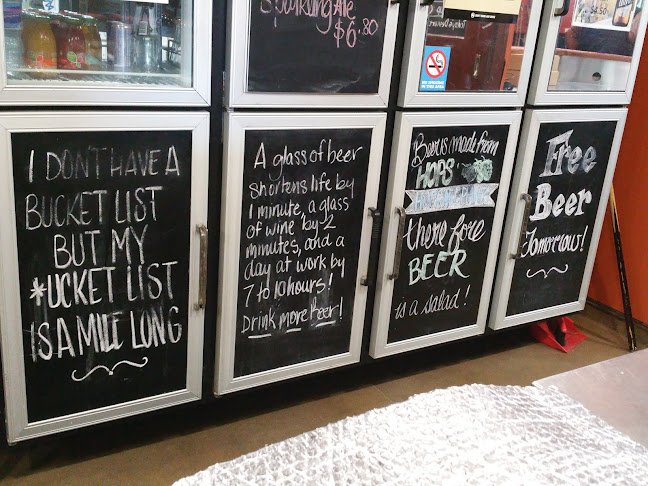 Sparkling Ale
$6.80
$4.50
I DON'T HAVE A
BUCKET LIST
BUT MY
*UCKET LIST
IS A MILE LONG
A glass of beer
shortens life by
1 minute, a glass
of wine by 2
minutes, and a
day at work by
7 to 10 hours!
Drink more beer!
Beer is made from
HOPS
there fore
BEER
is a salad!
Free
Beer
Tomorrow!